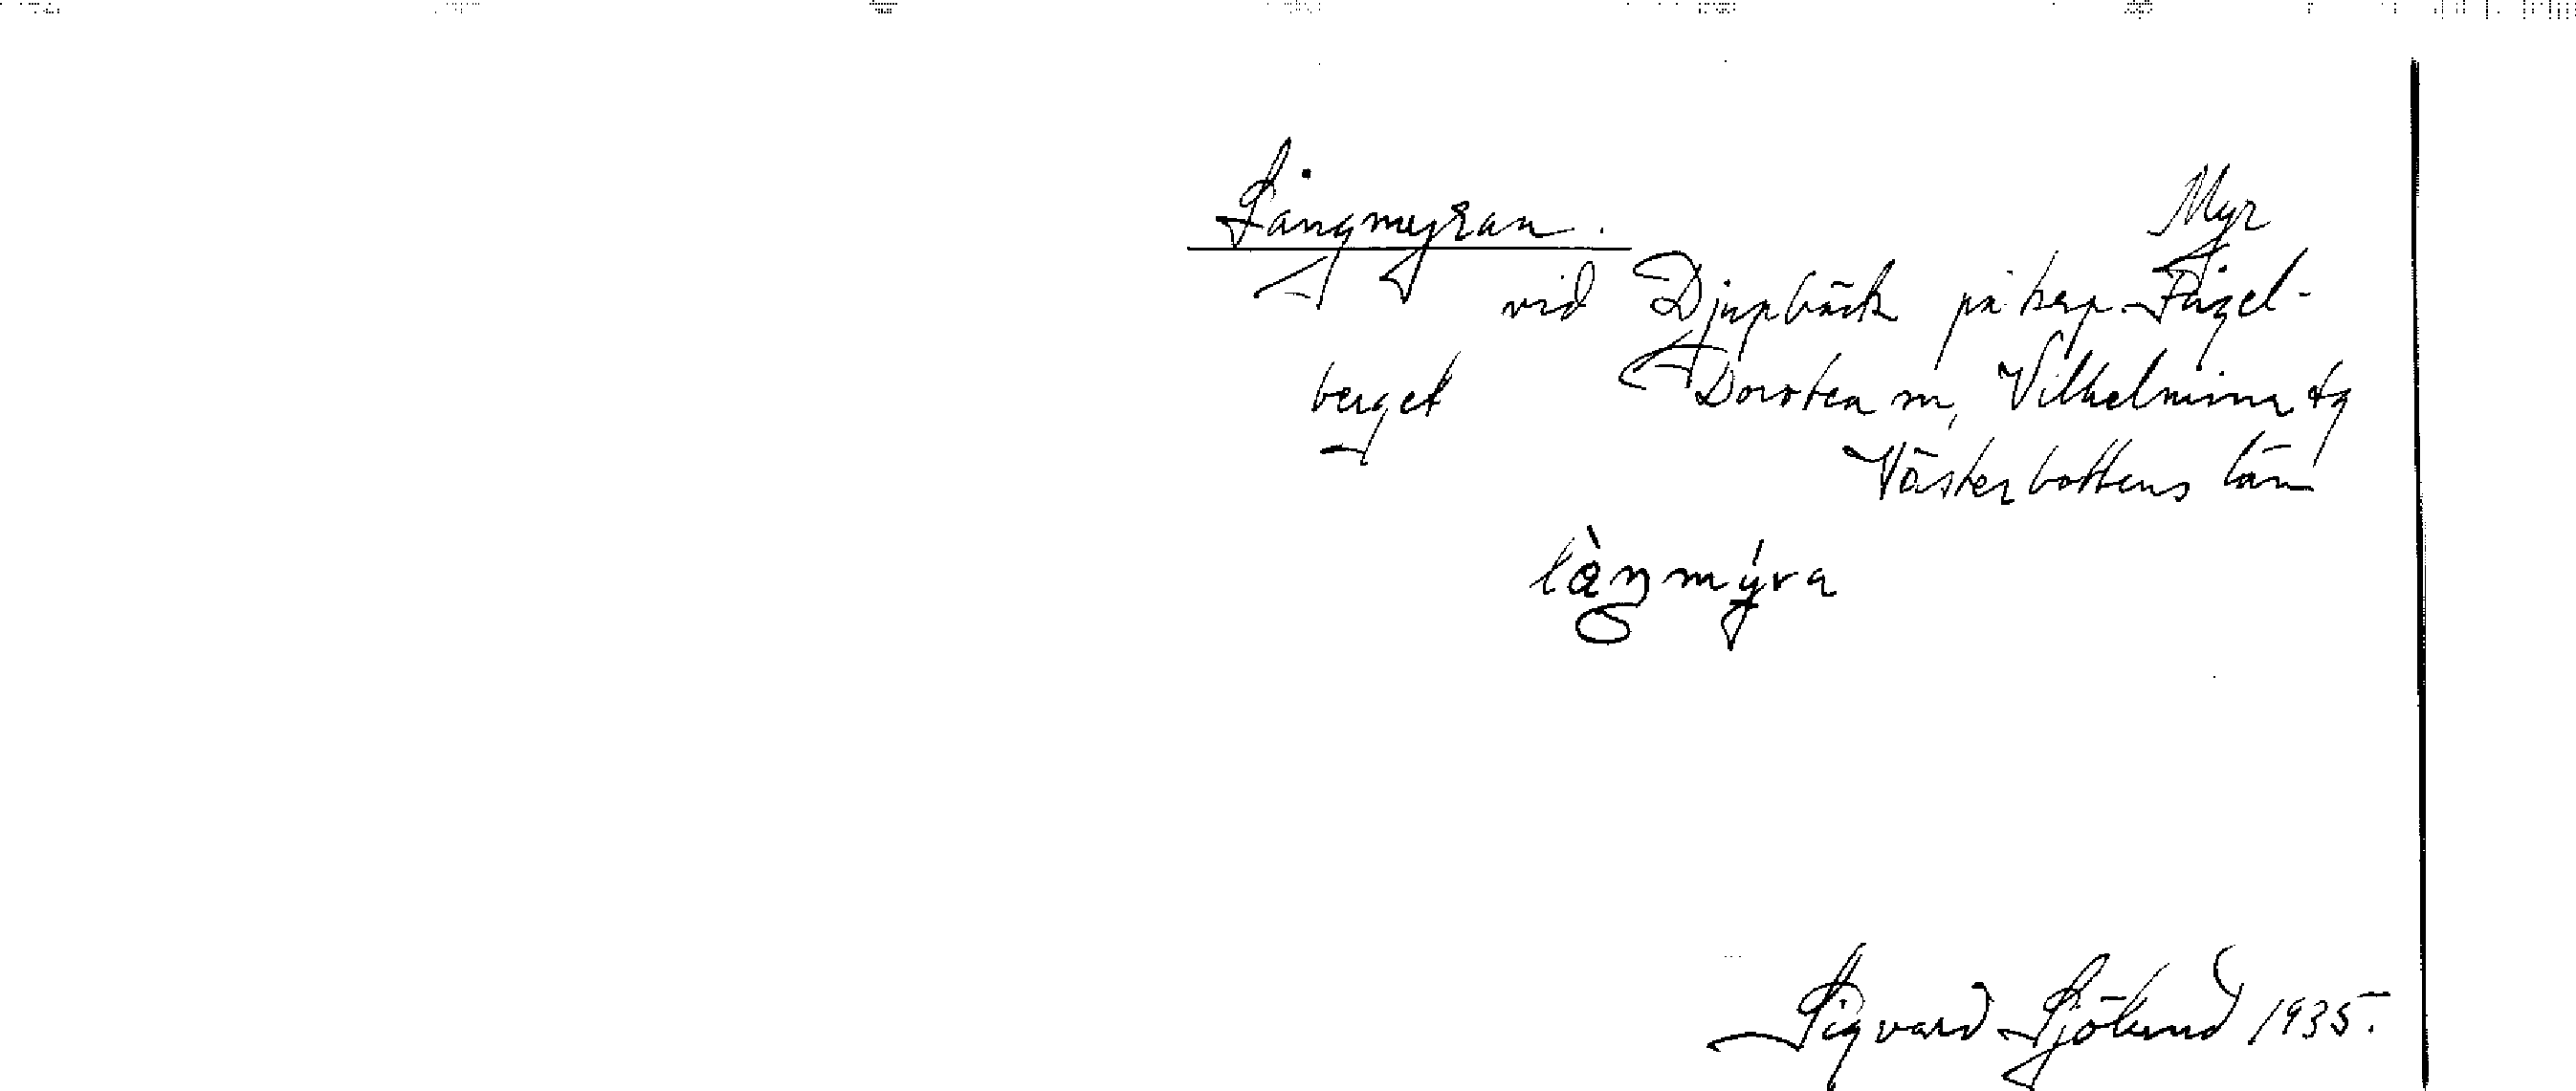 Långmyran. Myr
vid Djupbäck på berg. Fågel-
berget Dorotea sn, Vilhelmina tg
Västerbottens län
làŋmýra
Sigvard Sjölund 1935.